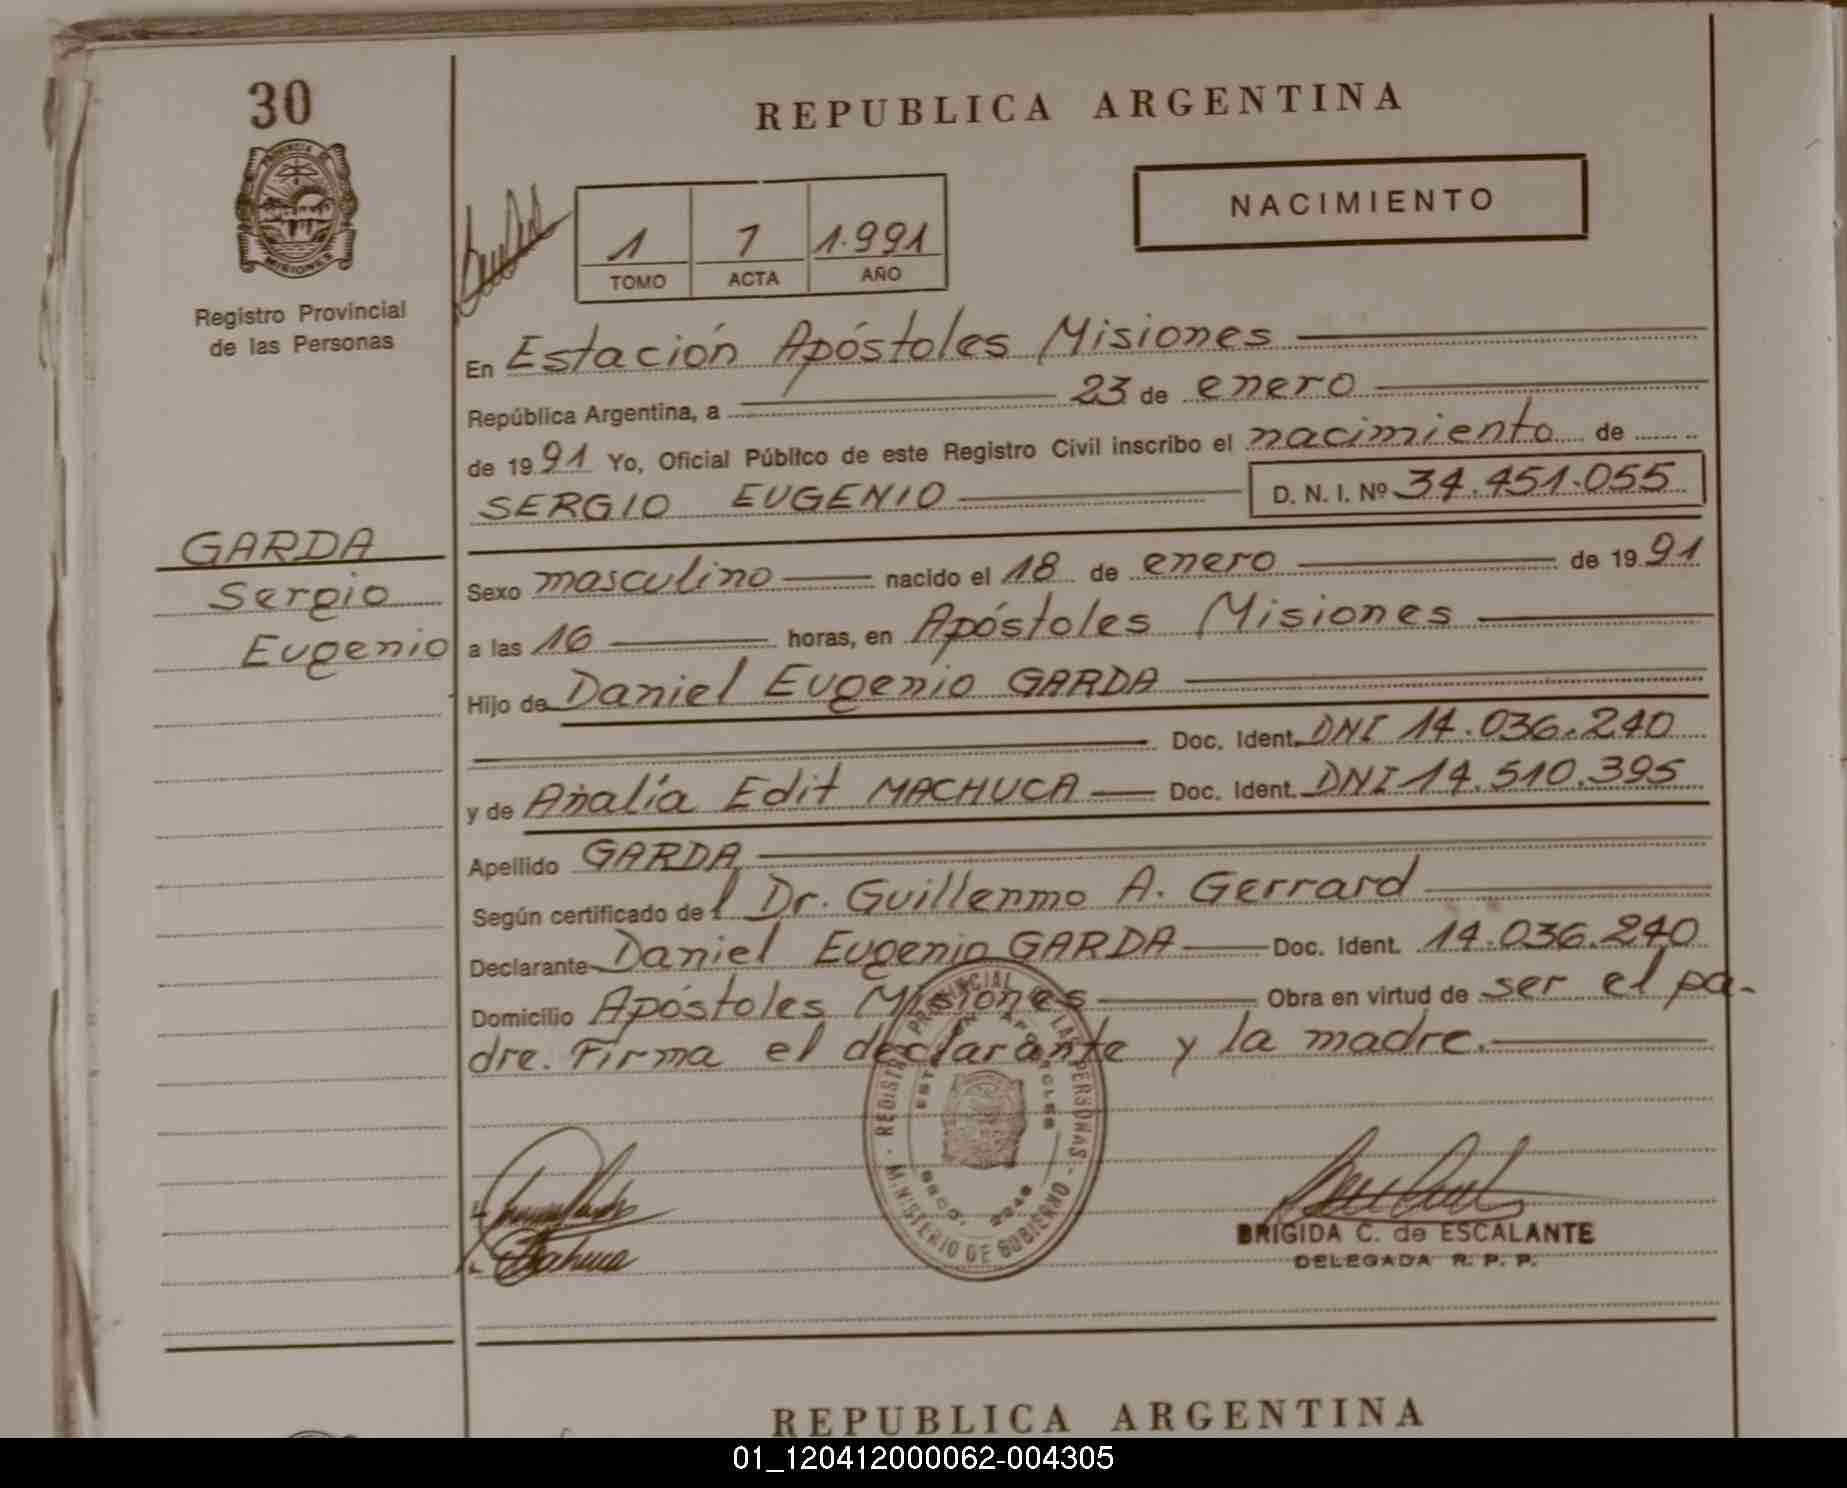 30
PROVINCIA DE
MISIONES
Registro Provincial
de las Personas
REPUBLICA ARGENTINA
NACIMIENTO
1 7 1.991
TOMO ACTA AÑO
En Estación Apóstoles Misiones
República Argentina, a 23 de enero
de 1991 Yo, Oficial Público de este Registro Civil inscribo el nacimiento de
SERGIO EUGENIO D. N. I. Nº 34.451.055
GARDA
Sergio
Eugenio
Sexo masculino nacido el 18 de enero de 1991
a las 16 horas, en Apóstoles Misiones
Hijo de Daniel Eugenio GARDA
Doc. Ident. DNI 14.036.240
y de Analía Edit MACHUCA Doc. Ident. DNI 14.510.395
Apellido GARDA
Según certificado del Dr. Guillermo A. Gerrard
Declarante Daniel Eugenio GARDA Doc. Ident. 14.036.240
Domicilio Apóstoles Misiones Obra en virtud de ser el pa-
dre. Firma el declarante y la madre.
REGISTRO PROVINCIAL DE LAS PERSONAS - MINISTERIO DE GOBIERNO -
ESTACION APOSTOLES
BRIGIDA C. de ESCALANTE
DELEGADA R. P. P.
REPUBLICA ARGENTINA
01_120412000062-004305